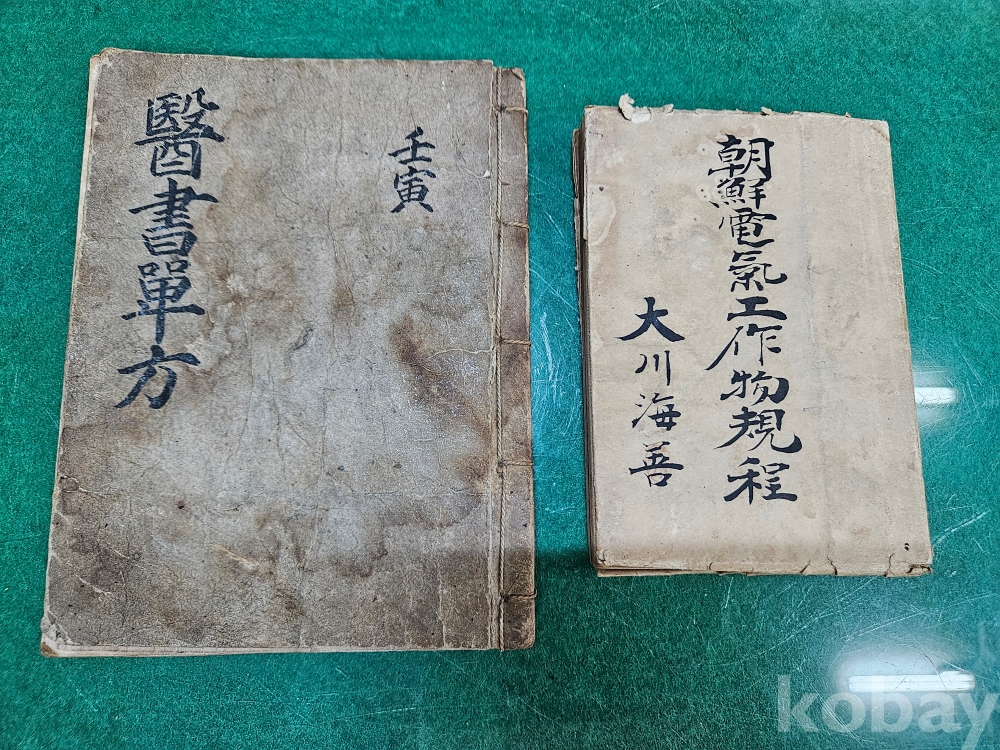 醫書單方
壬寅
朝鮮電氣工作物規程
大川海善
kobay